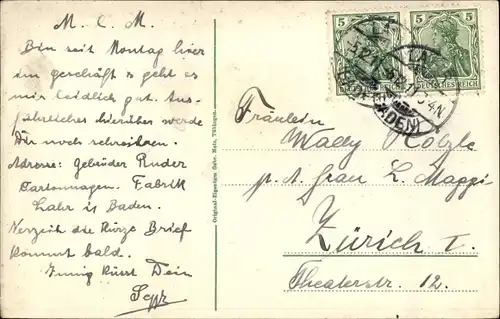 M. l. M.
Bin seit Montag hier
im Geschäft & geht es
mir leidlich gut. Aus-
führliches hierüber werde
Dir noch schreiben.
Adresse: Gebrüder
Cartonnagen. Fabrik
Lahr in Baden.
Verzeih die kurze Brief
kommt bald.
Innig küsst Dein
Sepp
Original-Eigentum Gebr. Metz, Tübingen.
5 5
DEUTSCHES REICH
LAHR
(BADEN)
Fräulein
Wally
p. A. Frau L. Maggi
Zürich I.
Theaterstr. 12.